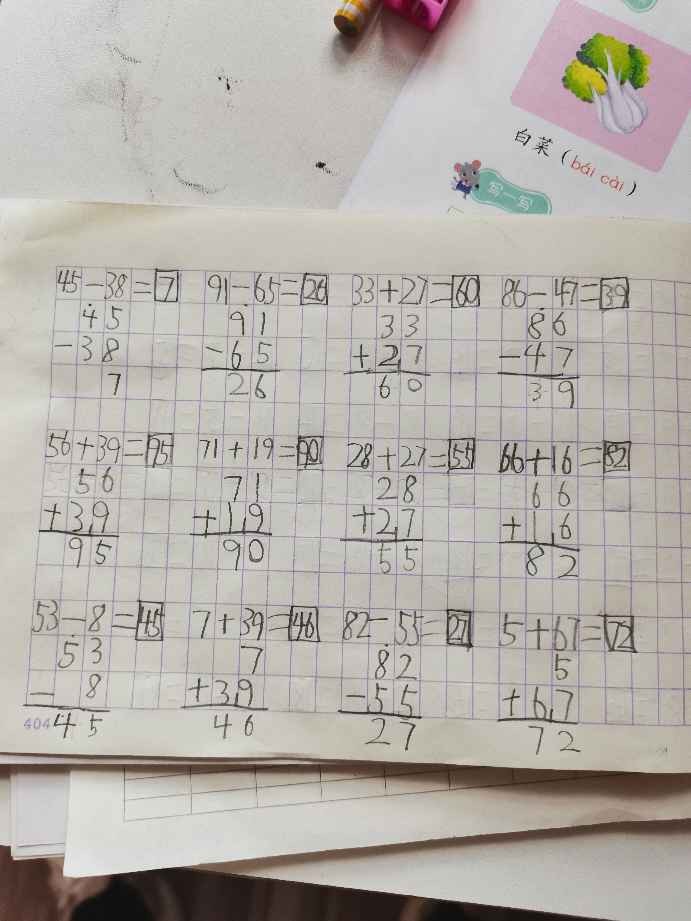 白菜 (bái cài)
写一写
45-38=7 91-65=26 33+27=60 86-47=39
45 91 33 86
-38 -65 +27 -47
7 26 60 39
56+39=95 71+19=90 28+27=55 66+16=82
56 71 28 66
+39 +19 +27 +16
95 90 55 82
53-8=45 7+39=46 82-55=27 5+67=72
53 7 82 5
- 8 +39 -55 +67
404 45 46 27 72